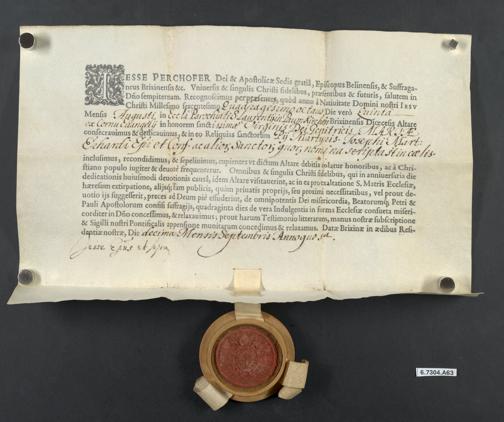 IESSE PERCHOFER Dei & Apostolicæ Sedis gratiâ, Episcopus Belinensis, & Suffraga-
neus Brixinensis &c. Vniversis & singulis Christi fidelibus, præsentibus & futuris, salutem in
Dño sempiternam. Recognoscimus per præsentes, quòd anno à Nativitate Domini nostri IESV
Christi Millesimo sexcentesimo Die verò Quinta
Mensis Augusti, in Parochiali S. Laurentii Brixinensis Diœcesis Altare
ex Cornu Evangelii in honorem Sanctissimæ Virginis Dei Genitricis MARIÆ
consecravimus & dedicavimus, & in eo Reliquias Sanctorum Martyris Josephi
Epi et Conf. ac alior. Sanctor. quor. nomina scripta st in cælis
inclusimus, recondidimus, & sepelivimus, cupientes vt dictum Altare debitis colatur honoribus, ac à Chri-
stiano populo iugiter & devotè frequentetur. Omnibus & singulis Christi fidelibus, qui in anniversaria die
dedicationis huiusmodi devotionis causâ, idem Altare visitaverint, ac in ea pro exaltatione S. Matris Ecclesiæ,
hæresum extirpatione, aliisque tam publicis, quàm privatis propriis, seu proximi necessitatibus, vel prout de-
votio ijs suggesserit, preces ad Deum piè effuderint, de omnipotentis Dei misericordia, Beatorumque Petri &
Pauli Apostolorum consisi suffragijs, quadraginta dies de vera Indulgentia in forma Ecclesiæ consueta miseri-
corditer in Dño concessimus, & relaxavimus, prout harum Testimonio literarum, manus nostræ subscriptione
& Sigilli nostri Pontificalis appensione munitarum concedimus & relaxamus. Datæ Brixinæ in ædibus Resi-
dentiæ nostræ, Die decima Mensis Septembris Anno quo sa.
6.7304.A63